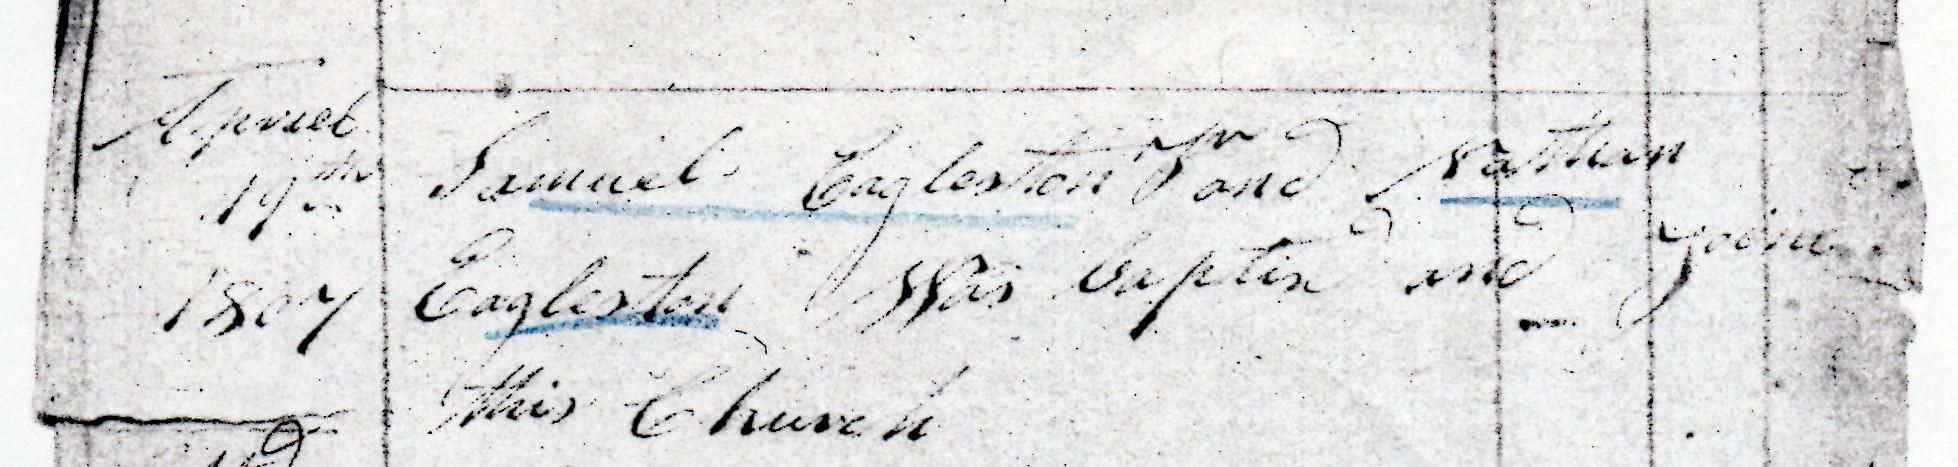 April
19th Samuel Eagleston Jr and Nathan
1807 Eagleston Was baptizd and Joined
this Church